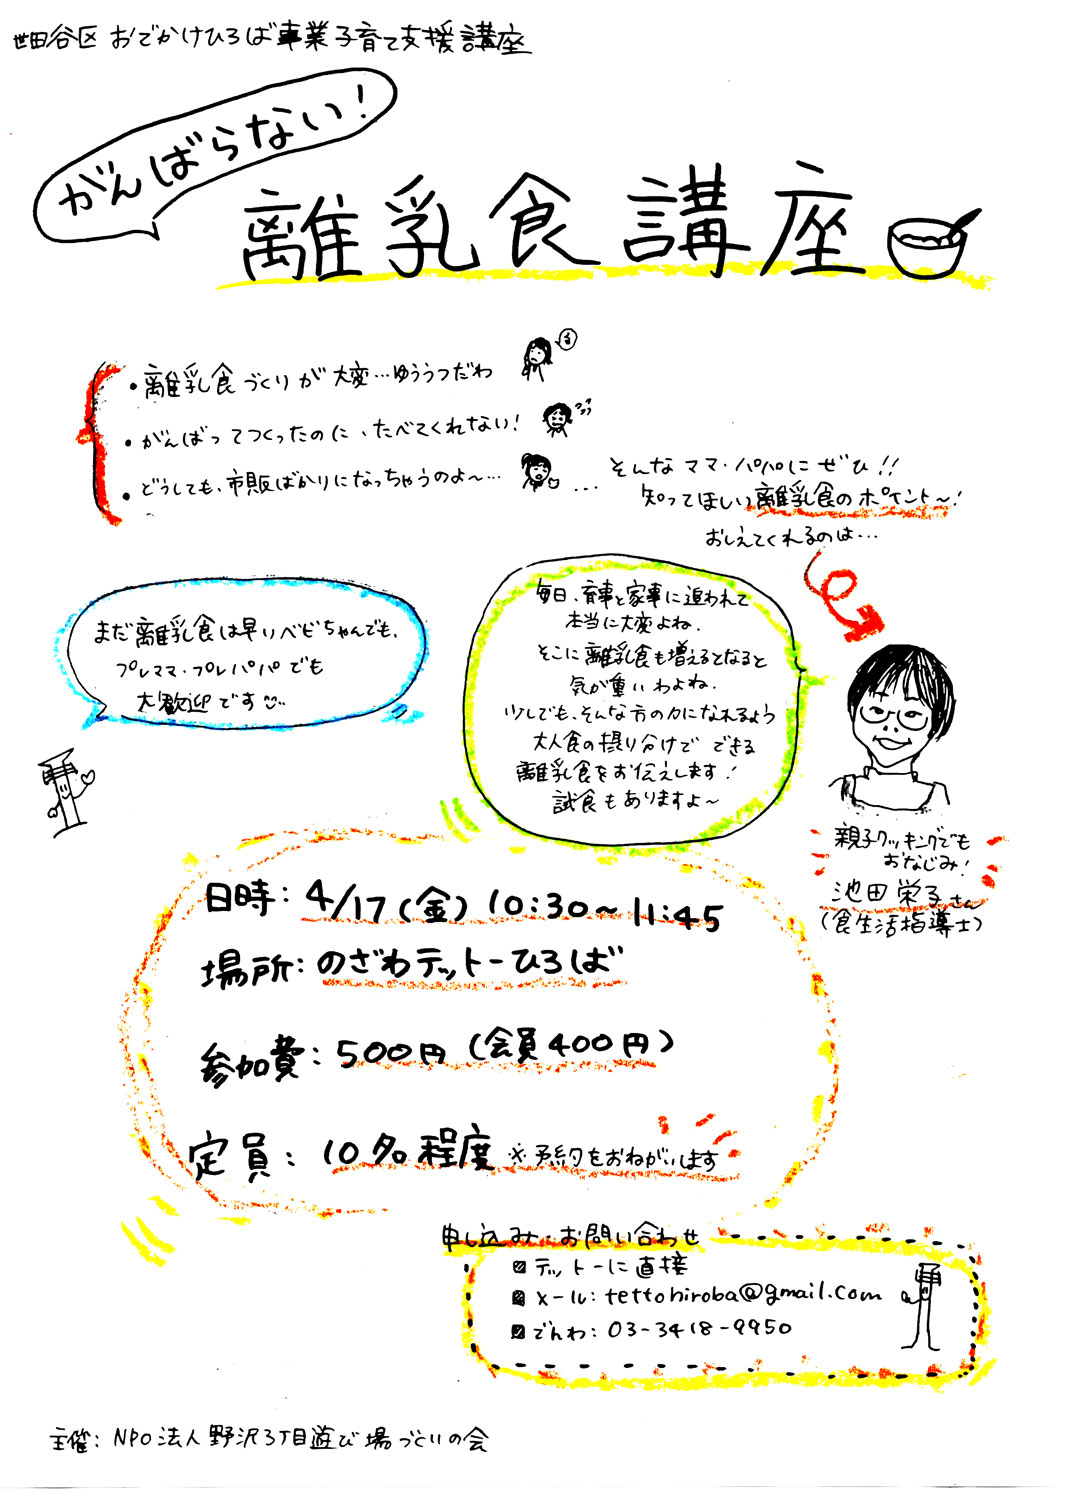 世田谷区 おでかけひろば事業 子育て支援講座
がんばらない!
離乳食講座
・離乳食づくりが大変…ゆううつだわ
・がんばってつくったのに、たべてくれない!
・どうしても、市販ばかりになっちゃうのよ〜…
...そんなママ・パパにぜひ!!
知ってほしい離乳食のポイント〜!
おしえてくれるのは…
まだ離乳食は早いベビちゃんでも、
プレママ・プレパパでも
大歓迎です
毎日、育事と家事に追われて
本当に大変よね、
そこに離乳食も増えるとなると
気が重いわよね.
少しでも、そんな方の力になれるよう
大人食の摂り分けでできる
離乳食をお伝えします!
試食もありますよ〜
親子クッキングでも
おなじみ!
池田栄子さん
(食生活指導士)
日時: 4/17(金) 10:30〜11:45
場所: のざわテットーひろば
参加費: 500円 (会員400円)
定員: 10名程度 ※予約をおねがいします
申し込み・お問い合わせ
テットーに直接
メール: tettohiroba@gmail.com
でんわ: 03-3418-9950
主催: NPO法人 野沢3丁目遊び場づくりの会